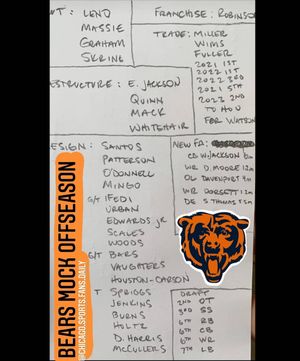 UT: LENO
MASSIE
GRAHAM
SKRINE
FRANCHISE: ROBINSON
TRADE: MILLER
WIMS
FULLER
2021 1ST
2022 1ST
2022 3RD
2021 5TH
2023 2ND
TO HOU
FOR WATSON
ESTRUCTURE: E. JACKSON
QUINN
MACK
WHITEHAIR
ESIGN: SANTOS
PATTERSON
O'DONNELL
MINGO
G/T IFEDI
URBAN
EDWARDS JR
SCALES
WOODS
G/T BARS
VAUGHTERS
HOUSTON-CARSON
T SPRIGGS
JENKINS
BURNS
HOLTZ
D. HARRIS
MCCULLERS
NEW FA:
CB W. JACKSON
WR D. MOORE 12M
OL DAVENPORT
WR DORSETT 12M
DE S THOMAS
DRAFT
2ND OT
3RD SS
6TH RB
6TH CB
6TH WR
7TH LB
BEARS MOCK OFFSEASON
@CHICAGO.SPORTS.FANS.DAILY